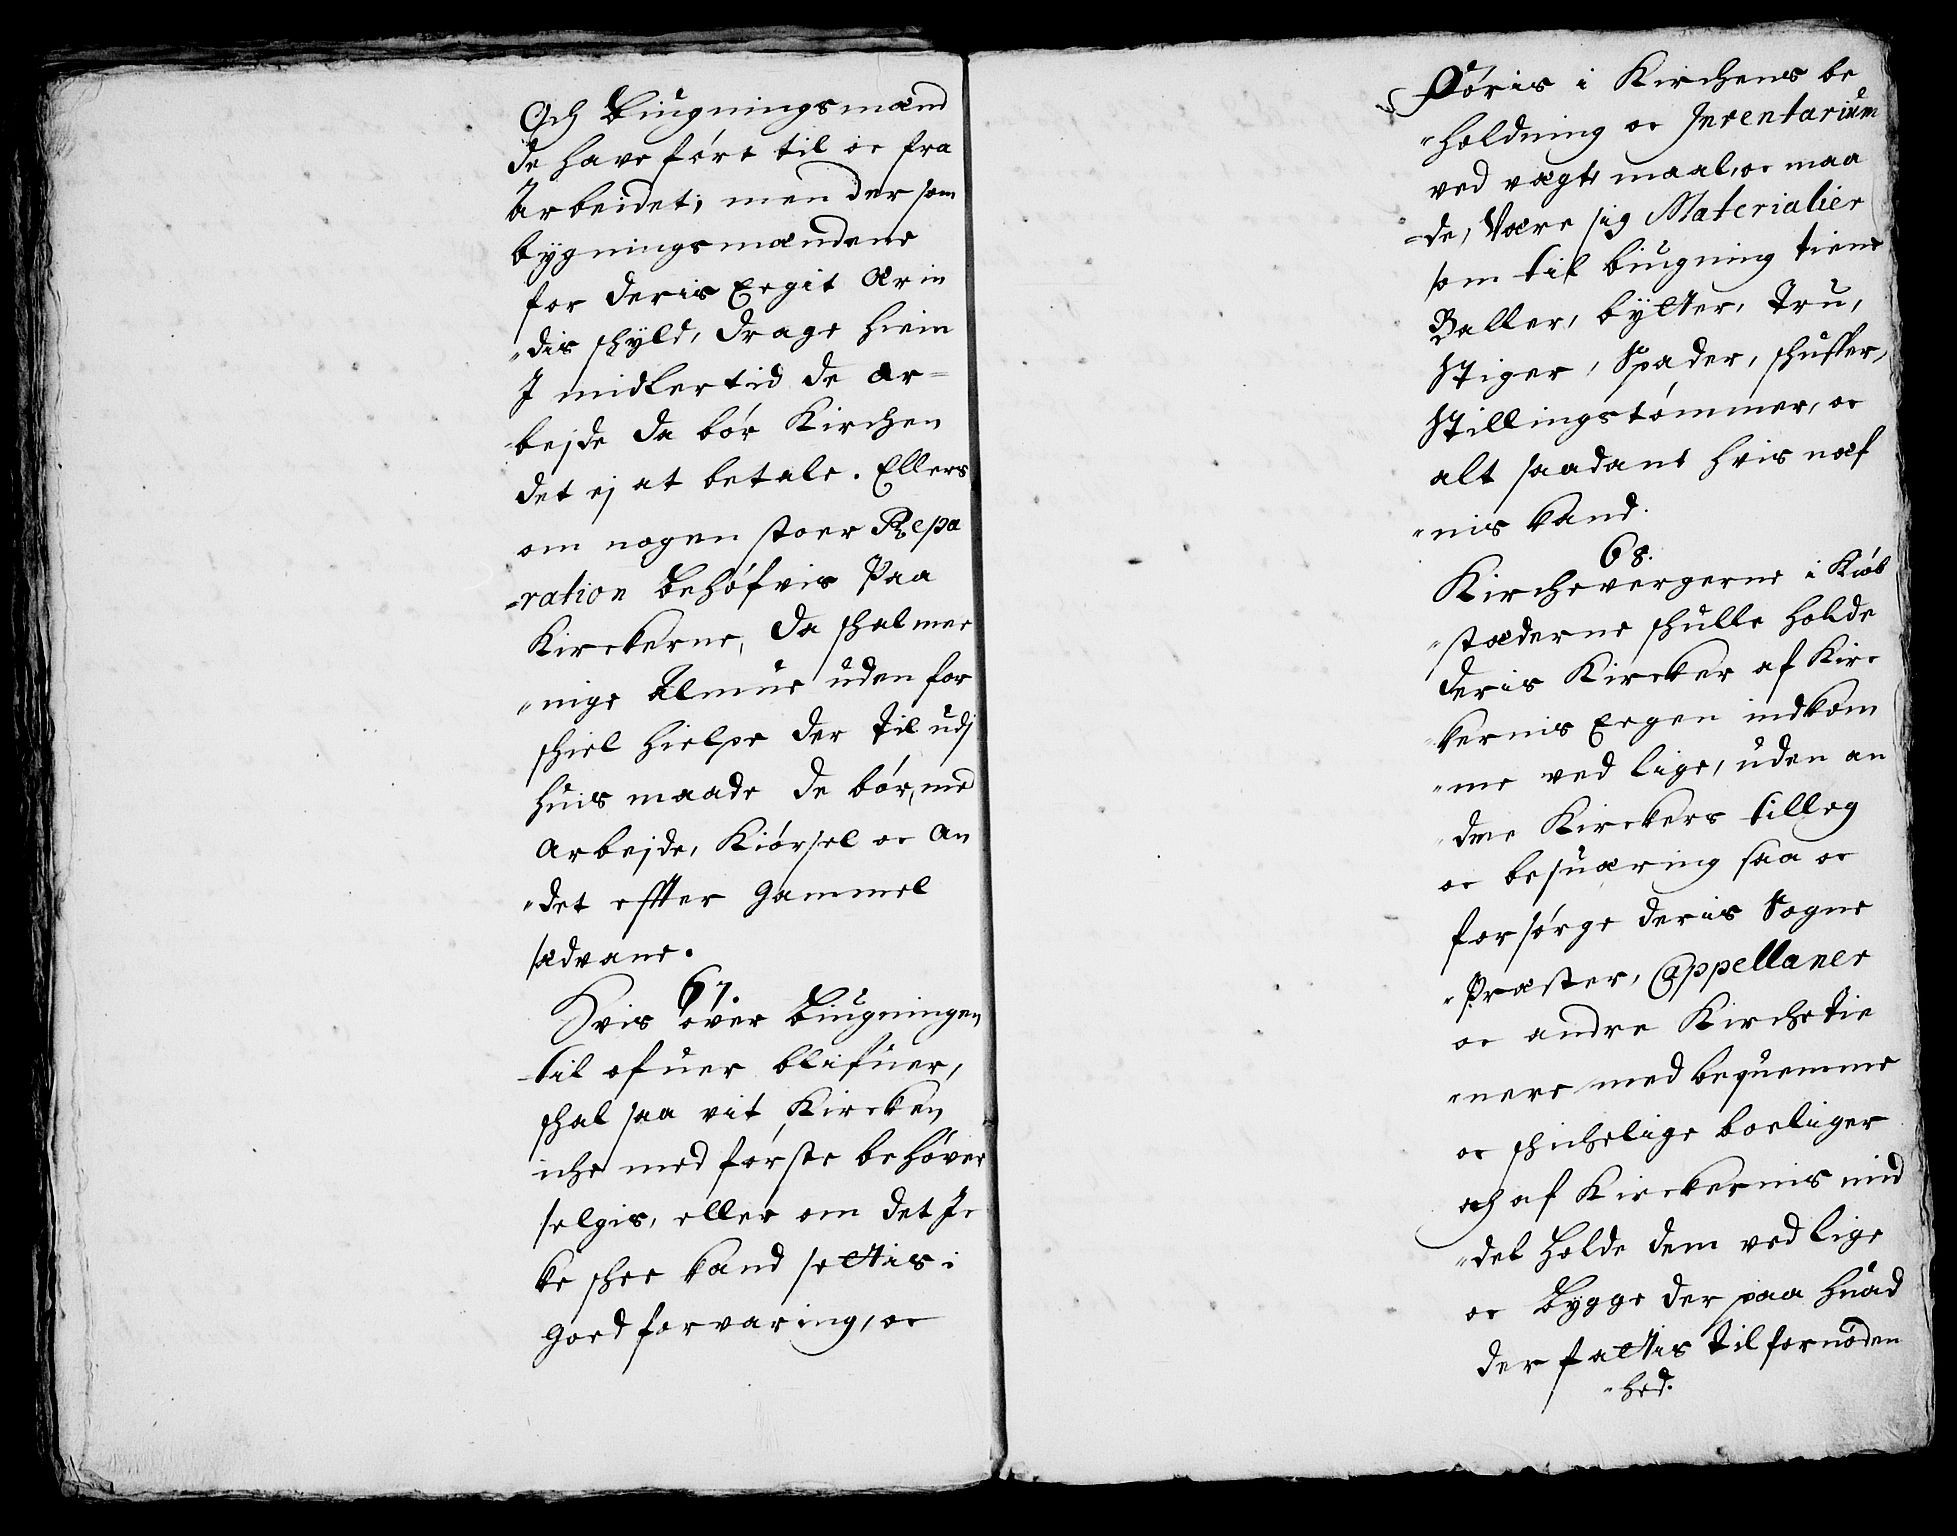 Och Biugningsmænd
de have føre til oc fra
Arbeidet; men der som
bygningsmændene
for deris Eegit Ærin
-dis schyld, drage hiem
I midlertid de ar=
bejde da bør Kirchen
det ej at betale. Ellers
om nogen stoer Repa
-ration Behøfvis Paa
Kirckerne, da schal me
-nige Almue uden for
schiel hielpe der til udj
huis maade de bør, med
Arbejde, Kiørsel oc An
-det effter Gammel
sædvane.
67.
Hvis over Biugningen
til ofuer blifuer,
schal saa vit Kircken
iche med første behøver
selgis, eller om det Ic
ke schee kand settis i
Goed forvaring, oc
Føris i Kirchens be
-holdning oc Inventarium
ved vægt, maal, oc maa
-de, Være sig Materialier
som til biugning tiene
Baller, bytter, Tru,
Stiger, Spader, schuffer,
Stillingstømmer, oc
alt saadant hvis næf
-nis kand.
68.
Kirchevergerne i Kiøb
-stæderne schulle holde
deris Kircker af Kirc
kernis Eegen indkom
-me ved lige, uden an
-dre Kirckers tilleg
oc besuæring saa oc
forsørge deris Sogne
-Præster, Cappellaner
oc andre Kirchetie
-nere med bequemme
oc schichelige boeliger
och af Kirckernis mid
-del holde dem ved lige
oc Bygge der paa huad
der fattis til fornøden
-hed.